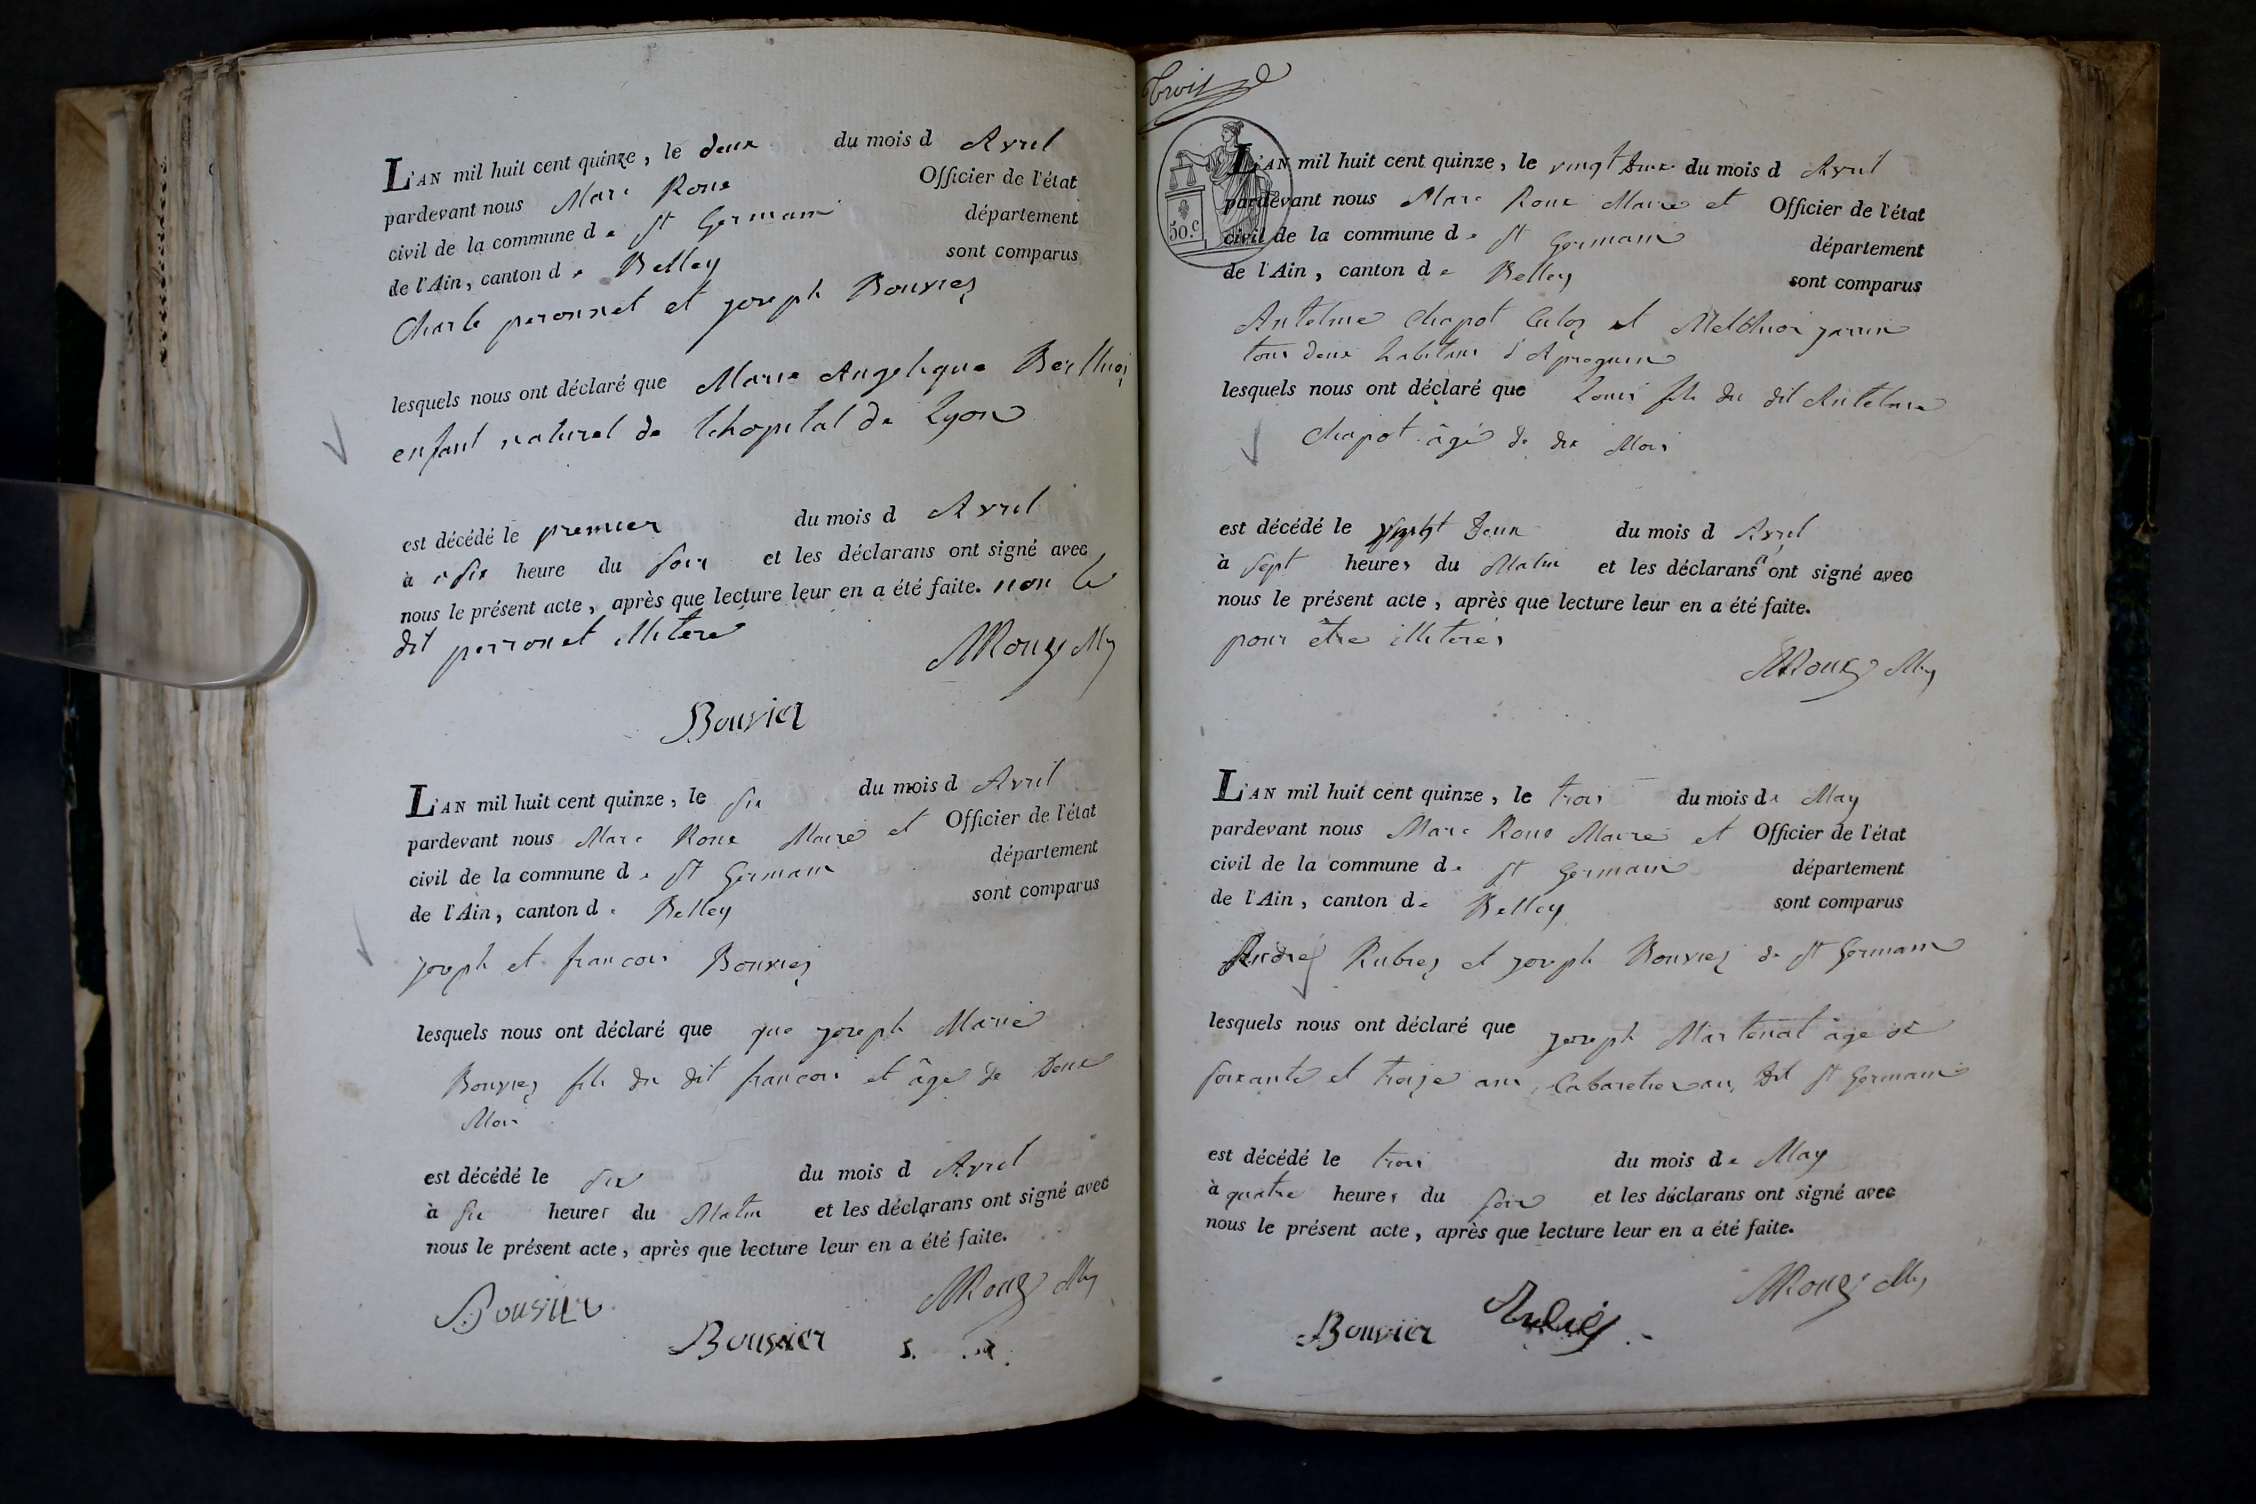 L'AN mil huit cent quinze, le deux du mois d Avril
pardevant nous Marc Roux Officier de l'état
civil de la commune de St Germain département
de l'Ain, canton de Belley sont comparus
Charle peronnet et joseph Bouvier
lesquels nous ont déclaré que Marie Angelique
enfant naturel de lhopital de Lyon
est décédé le premier du mois d Avril
à six heure du soir et les déclarans ont signé avec
nous le présent acte, après que lecture leur en a été faite. non le
dit perronet illitere
MRoux
Bouvier
L'AN mil huit cent quinze, le six du mois d Avril
pardevant nous Marc Roux Maire et Officier de l'état
civil de la commune de St Germain département
de l'Ain, canton de Belley sont comparus
joseph et francois Bouvier
lesquels nous ont déclaré que que joseph Marie
Bouvier fils du dit francois et âgé de Deux
Mois
est décédé le six du mois d Avril
à six heures du Matin et les déclarans ont signé avec
nous le présent acte, après que lecture leur en a été faite.
MRoux
Bouvier
Bouvier
Trois
50.c
L'AN mil huit cent quinze, le vingt deux du mois d Avril
pardevant nous Marc Roux Maire et Officier de l'état
civil de la commune de St Germain département
de l'Ain, canton de Belley sont comparus
Antelme Chapot et Melchior
tous deux habitans
lesquels nous ont déclaré que Louis fils du dit Antelme
Chapot âgé de dix Mois
est décédé le vingt Deux du mois d Avril
à sept heures du Matin et les déclarans n'ont signé avec
nous le présent acte, après que lecture leur en a été faite.
pour être illiterés
MRoux
L'AN mil huit cent quinze, le trois du mois de May
pardevant nous Marc Roux Maire et Officier de l'état
civil de la commune de St Germain département
de l'Ain, canton de Belley sont comparus
André Rubiez et joseph Bouvier de St Germain
lesquels nous ont déclaré que joseph Martenat âgé de
soixante et treize ans, Cabaretier au dit St Germain
est décédé le trois du mois de May
à quatre heures du soir et les déclarans ont signé avec
nous le présent acte, après que lecture leur en a été faite.
MRoux
Bouvier